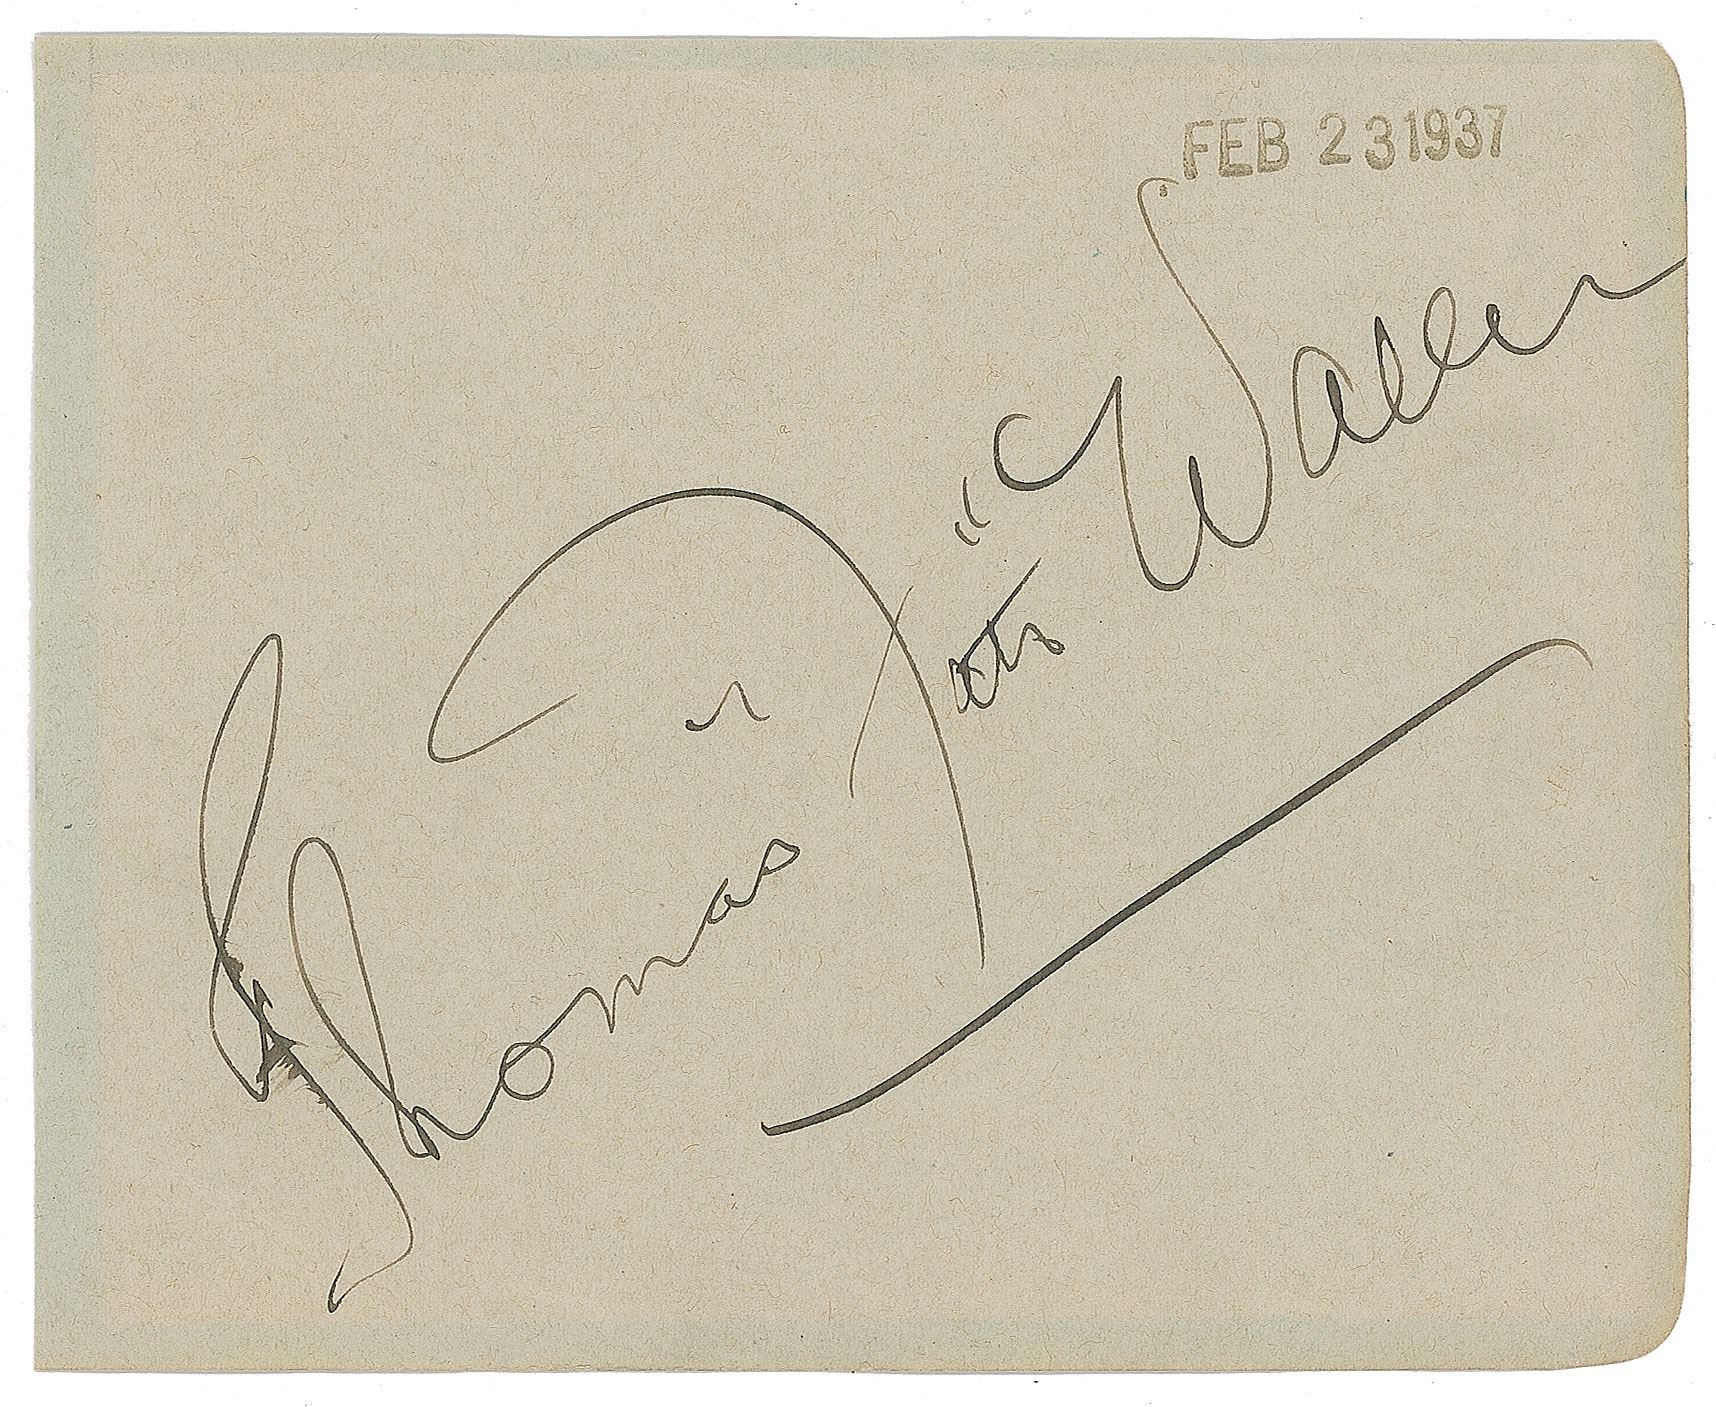 FEB 23 1937
Thomas "Fats" Waller